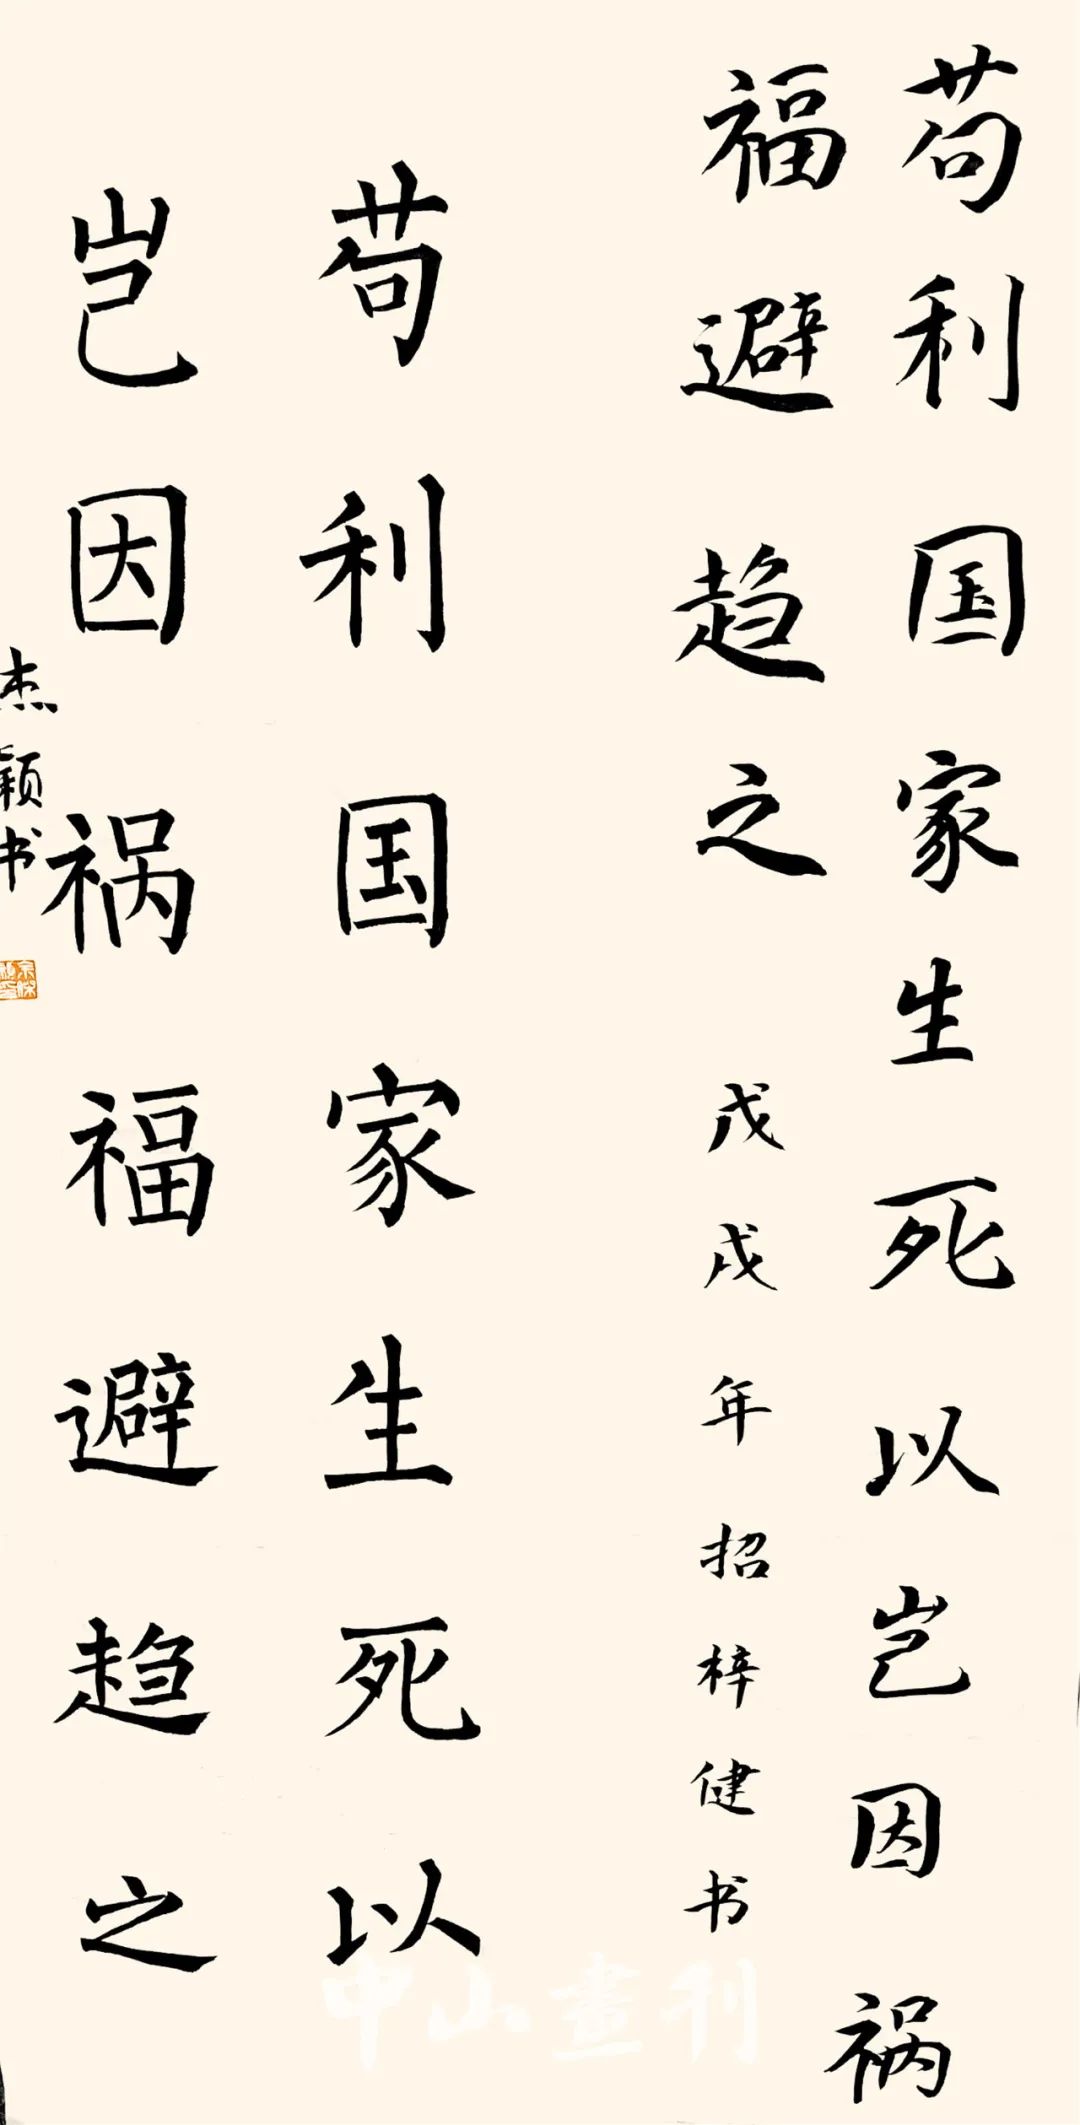 苟利国家生死以岂因祸
福避趋之
戊戌年招梓健书
苟利国家生死以
岂因祸福避趋之
杰颖书
中山畫刊